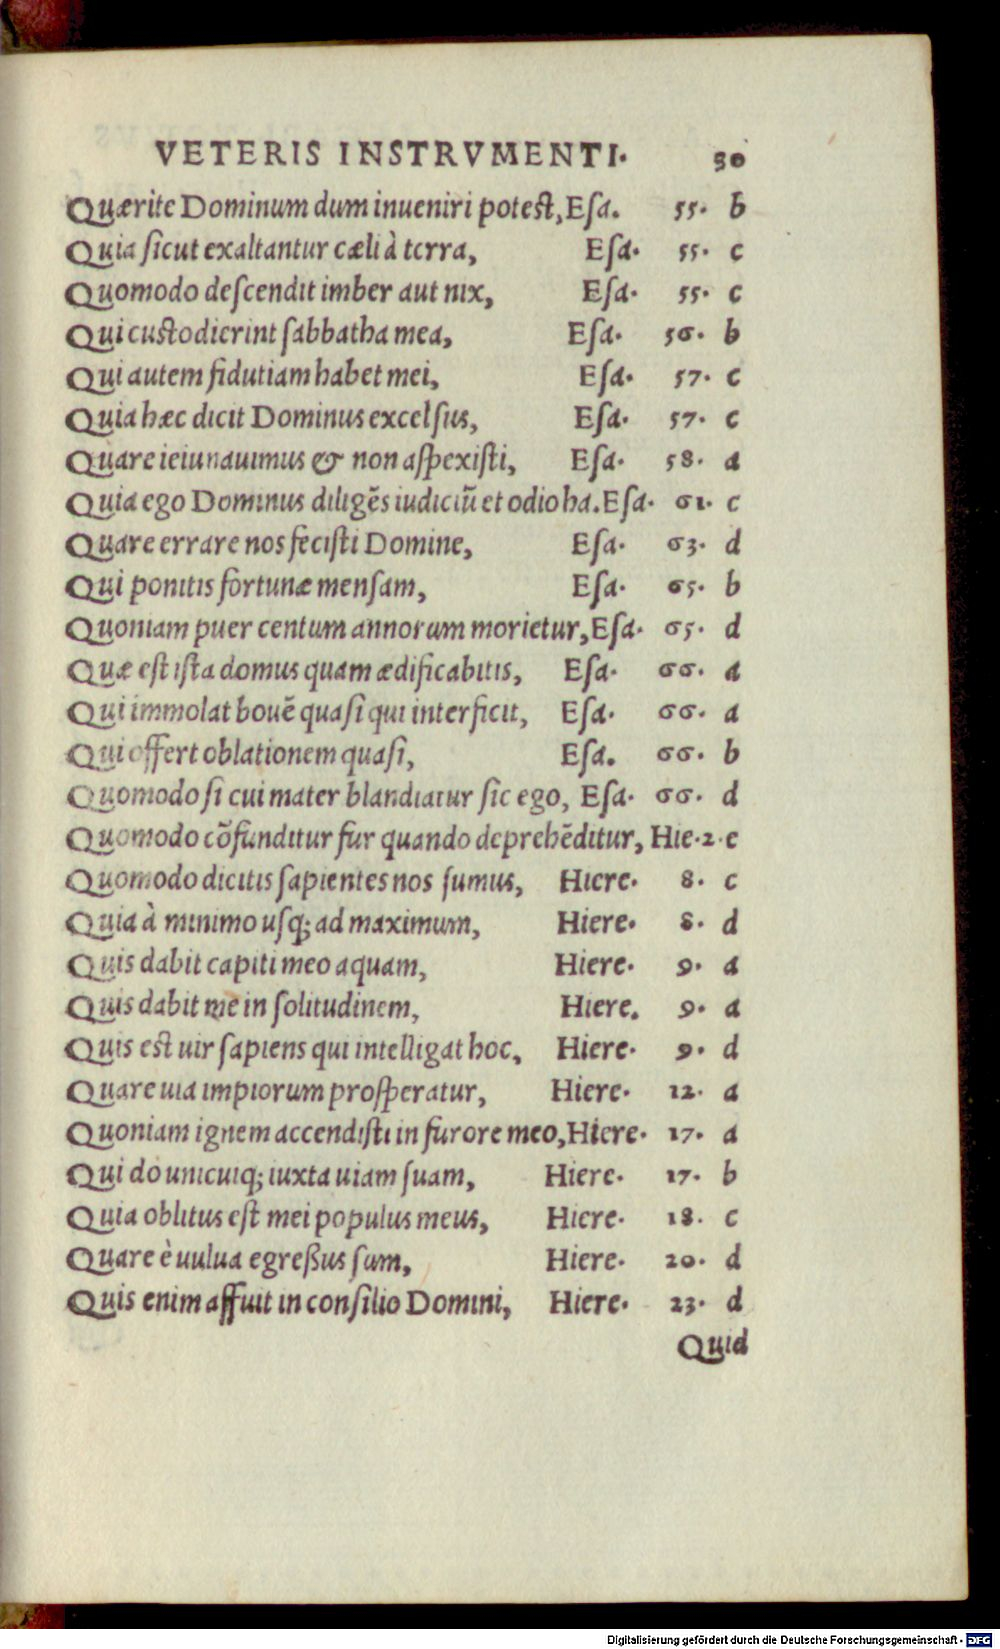 VETERIS INSTRVMENTI. 50
Quærite Dominum dum inueniri potest, Esa. 55. b
Quia sicut exaltantur cæli à terra, Esa. 55. c
Quomodo descendit imber aut nix, Esa. 55. c
Qui custodierint sabbatha mea, Esa. 56. b
Qui autem fidutiam habet mei, Esa. 57. c
Quia hæc dicit Dominus excelsus, Esa. 57. c
Quare ieiunauimus & non aspexisti, Esa. 58. a
Quia ego Dominus diligẽs iudiciũ et odio ha. Esa. 61. c
Quare errare nos fecisti Domine, Esa. 63. d
Qui ponitis fortunæ mensam, Esa. 65. b
Quoniam puer centum annorum morietur, Esa. 65. d
Quæ est ista domus quam ædificabitis, Esa. 66. a
Qui immolat bouẽ quasi qui interficit, Esa. 66. a
Qui offert oblationem quasi, Esa. 66. b
Quomodo si cui mater blandiatur sic ego, Esa. 66. d
Quomodo cõfunditur fur quando deprehẽditur, Hie. 2. e
Quomodo dicitis sapientes nos sumus, Hiere. 8. c
Quia à minimo usq; ad maximum, Hiere. 8. d
Quis dabit capiti meo aquam, Hiere. 9. a
Quis dabit me in solitudinem, Hiere. 9. a
Quis est uir sapiens qui intelligat hoc, Hiere. 9. d
Quare uia impiorum prosperatur, Hiere. 12. a
Quoniam ignem accendisti in furore meo, Hiere. 17. a
Qui do unicuiq; iuxta uiam suam, Hiere. 17. b
Quia oblitus est mei populus meus, Hiere. 18. c
Quare è uulua egreßus sum, Hiere. 20. d
Quis enim affuit in consilio Domini, Hiere. 23. d
Quid
Digitalisierung gefördert durch die Deutsche Forschungsgemeinschaft - DFG